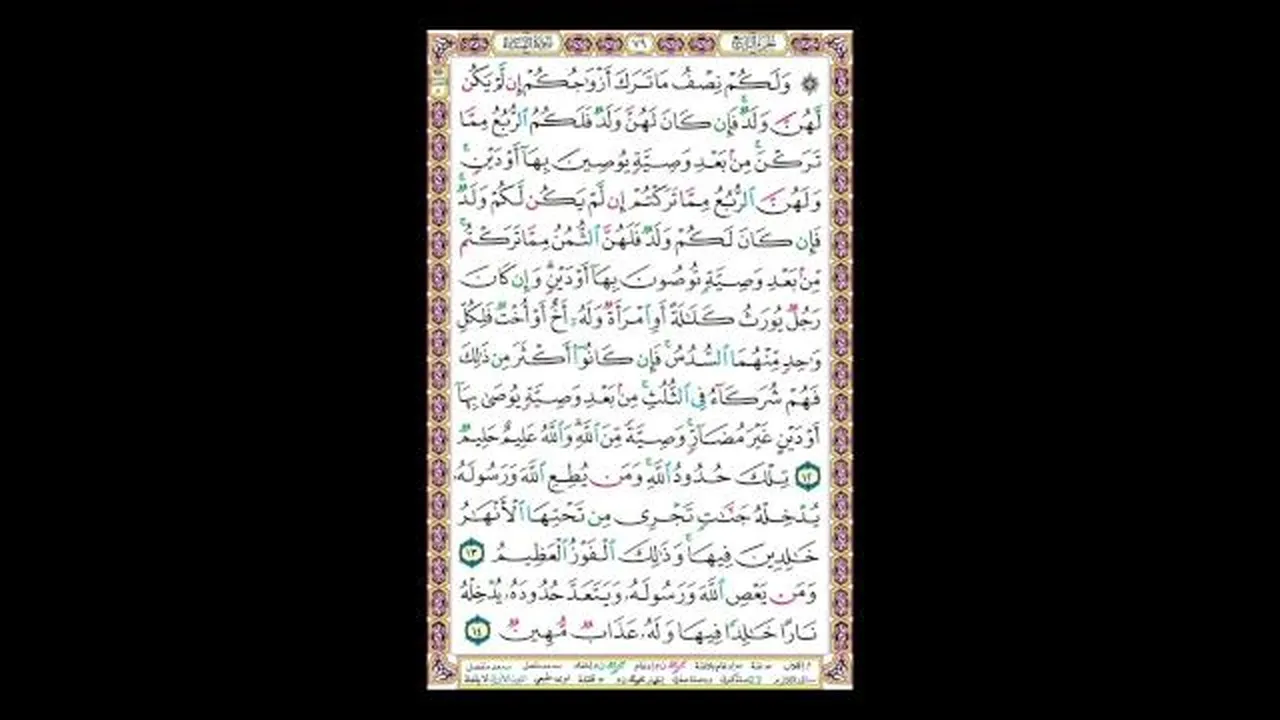 الجزء الرابع ٧٩ سورة النساء
۞ وَلَكُمْ نِصْفُ مَا تَرَكَ أَزْوَٰجُكُمْ إِن لَّمْ يَكُن
لَّهُنَّ وَلَدٌ ۚ فَإِن كَانَ لَهُنَّ وَلَدٌ فَلَكُمُ ٱلرُّبُعُ مِمَّا
تَرَكْنَ ۚ مِنۢ بَعْدِ وَصِيَّةٍ يُوصِينَ بِهَآ أَوْ دَيْنٍ ۚ
وَلَهُنَّ ٱلرُّبُعُ مِمَّا تَرَكْتُمْ إِن لَّمْ يَكُن لَّكُمْ وَلَدٌ ۚ
فَإِن كَانَ لَكُمْ وَلَدٌ فَلَهُنَّ ٱلثُّمُنُ مِمَّا تَرَكْتُم ۚ
مِّنۢ بَعْدِ وَصِيَّةٍ تُوصُونَ بِهَآ أَوْ دَيْنٍ ۗ وَإِن كَانَ
رَجُلٌ يُورَثُ كَلَٰلَةً أَوِ ٱمْرَأَةٌ وَلَهُۥٓ أَخٌ أَوْ أُخْتٌ فَلِكُلِّ
وَٰحِدٍ مِّنْهُمَا ٱلسُّدُسُ ۚ فَإِن كَانُوٓا۟ أَكْثَرَ مِن ذَٰلِكَ
فَهُمْ شُرَكَآءُ فِى ٱلثُّلُثِ ۚ مِنۢ بَعْدِ وَصِيَّةٍ يُوصَىٰ بِهَآ
أَوْ دَيْنٍ غَيْرَ مُضَآرٍّ ۚ وَصِيَّةً مِّنَ ٱللَّهِ ۗ وَٱللَّهُ عَلِيمٌ حَلِيمٌ
١٢ تِلْكَ حُدُودُ ٱللَّهِ ۚ وَمَن يُطِعِ ٱللَّهَ وَرَسُولَهُۥ
يُدْخِلْهُ جَنَّٰتٍ تَجْرِى مِن تَحْتِهَا ٱلْأَنْهَٰرُ
خَٰلِدِينَ فِيهَا ۚ وَذَٰلِكَ ٱلْفَوْزُ ٱلْعَظِيمُ ١٣
وَمَن يَعْصِ ٱللَّهَ وَرَسُولَهُۥ وَيَتَعَدَّ حُدُودَهُۥ يُدْخِلْهُ
نَارًا خَٰلِدًا فِيهَا وَلَهُۥ عَذَابٌ مُّهِينٌ ١٤